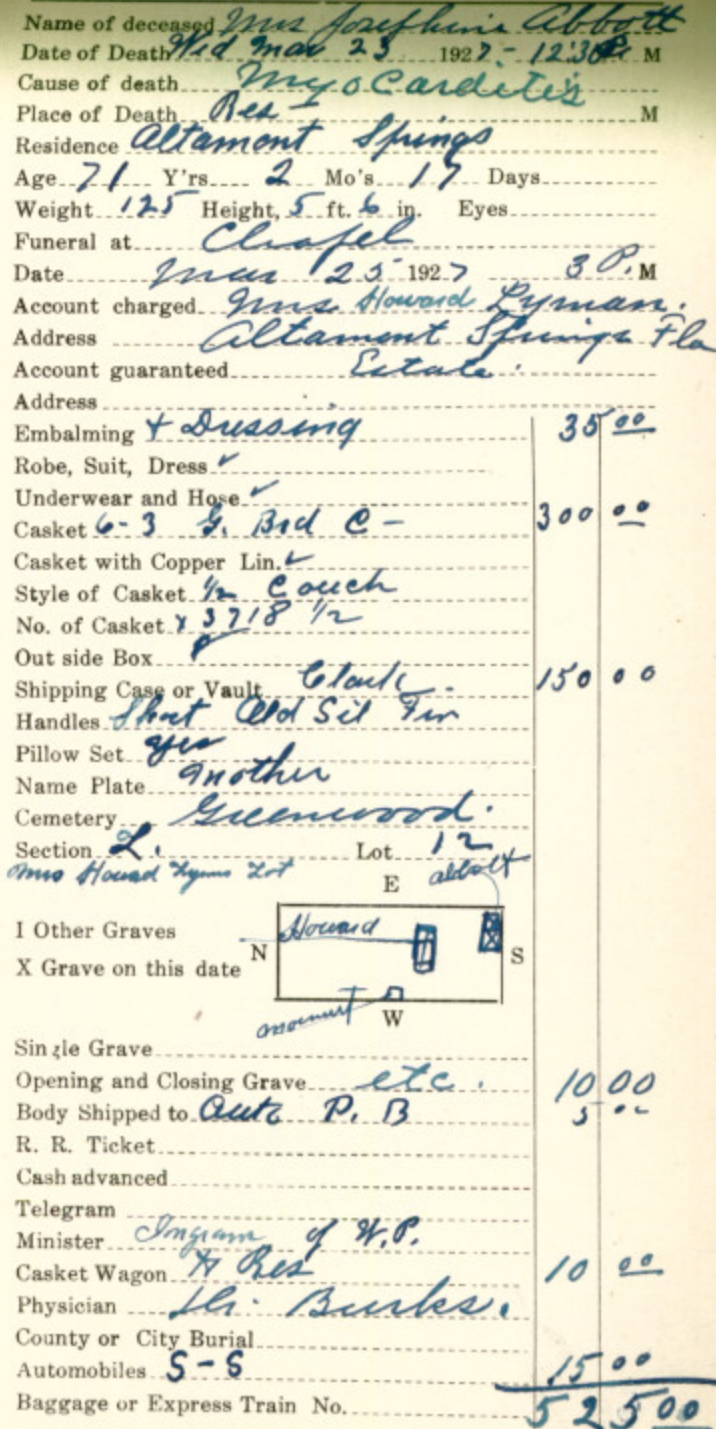 Name of deceased Mrs Josephine Abbott
Date of Death Wed Mar 23 1927 - 12:30 P. M
Cause of death Myocarditis
Place of Death Res M
Residence Altamont Springs
Age 71 Y'rs 2 Mo's 17 Days
Weight 125 Height, 5 ft. 6 in. Eyes
Funeral at Chapel
Date Mar 25 1927 3 P. M
Account charged Mrs Howard Lyman.
Address Altamont Springs Fla
Account guaranteed Estate.
Address
Embalming + Dressing 35 00
Robe, Suit, Dress ✓
Underwear and Hose ✓
Casket 6-3 G. Brd C - 300 00
Casket with Copper Lin. ✓
Style of Casket 1/2 Couch
No. of Casket x 3718 1/2
Out side Box
Shipping Case or Vault Clark. 150 00
Handles Short Old Sil Fin
Pillow Set yes
Name Plate Mother
Cemetery Greenwood.
Section L. Lot 12
Mrs Howard Lymans Lot
E abbott
I Other Graves
Howard
N S
X Grave on this date
W
Single Grave
Opening and Closing Grave etc. 10 00
Body Shipped to Auto P. B 5 00
R. R. Ticket
Cash advanced
Telegram
Minister Ingram of W.P.
Casket Wagon to Res 10 00
Physician Dr. Burks.
County or City Burial
Automobiles S-S 15 00
Baggage or Express Train No. 525 00